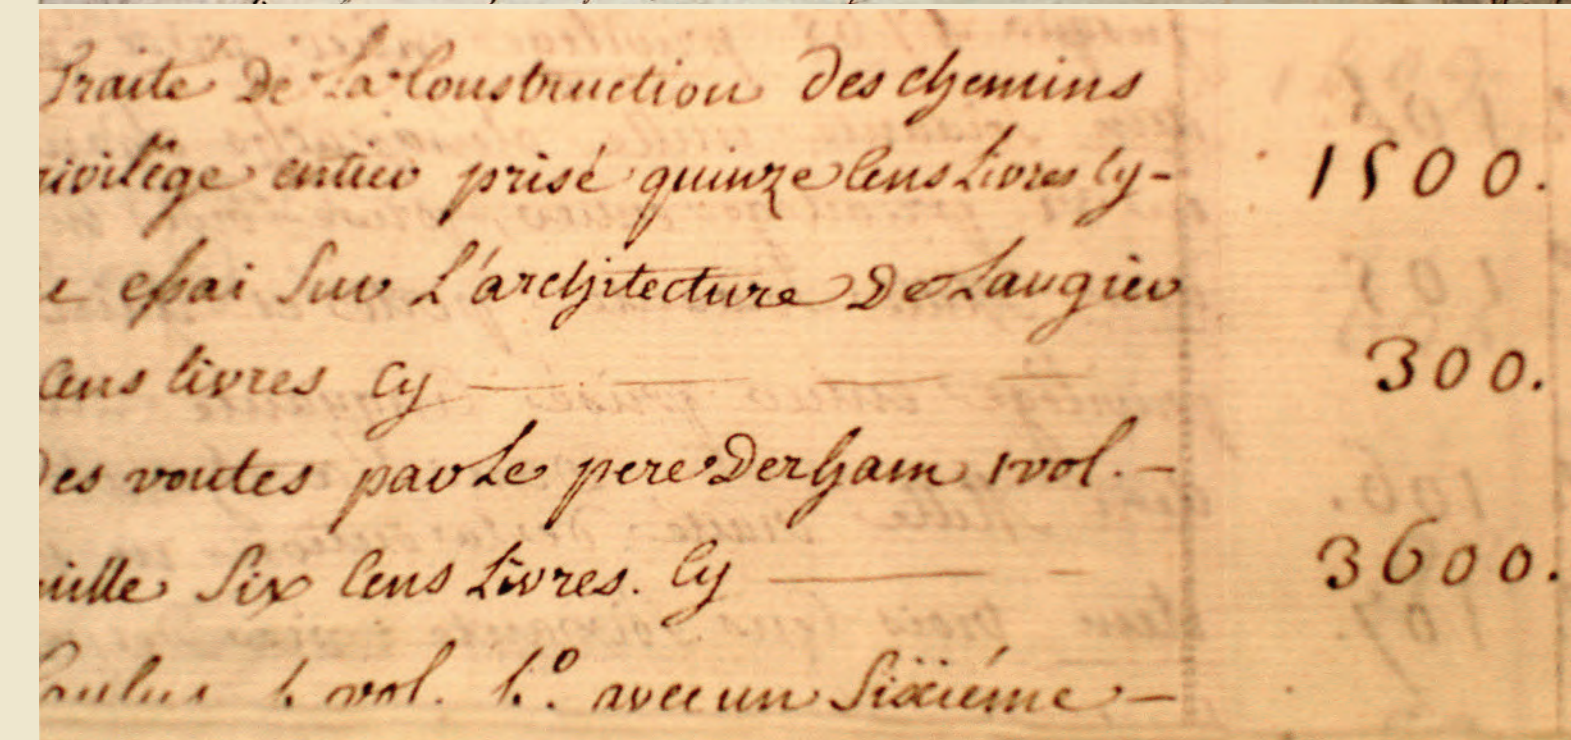 Traité De La Construction des chemins
rivilége entier prisé quinze Cens Livres Cy - 1500.
essai Sur L'architecture De Laugier
Cens livres Cy 300.
Des voutes par Le pere Derham 1 vol. -
mille Six Cens Livres. Cy 3600.
vol. 4.º avec un Sixiéme -